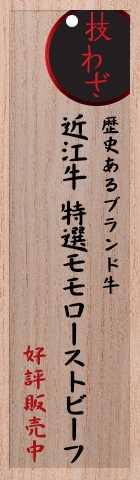 技わざ
歴史あるブランド牛
近江牛 特選モモローストビーフ
好評販売中